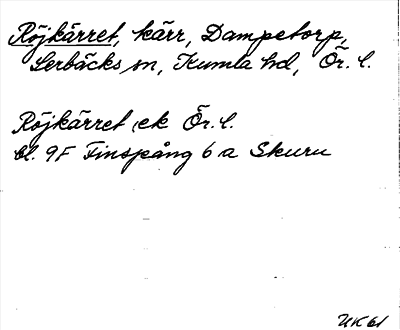 Röjkärret, kärr, Dampetorp,
Lerbäcks sn, Kumla hd, Ör. l.
Röjkärret ek Ör. l.
bl. 9F Finspång 6 a Skuru
UK 61